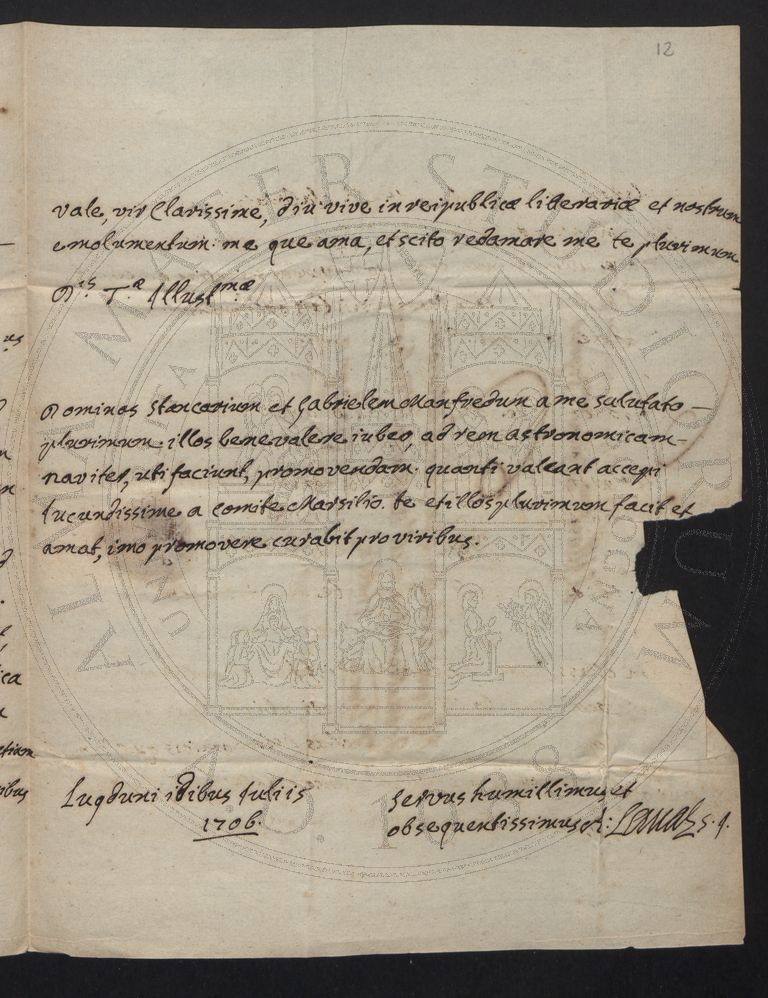 12
vale, vir Clarissime, diu vive in reipublicæ litterariæ et nostrum
emolumentum. me que ama, et scito redamare me te plurimum
D.is T.æ Illust.mæ
Dominos Stancarium et Gabrielem Manfredum a me salutato
plurimum. illos bene valere iubeo, ad rem astronomicam
naviter, uti faciunt, promovendam. quanti valeant accepi
iucundissime a comite Marsilio. te et illos plurimum facit et
amat, imo promovere curabit pro viribus.
Lugduni idibus Juliis
1706.
servus humillimus et
obsequentissimus A: Laval s. J.
ALMA MATER STUDIORUM
A.D. 1088